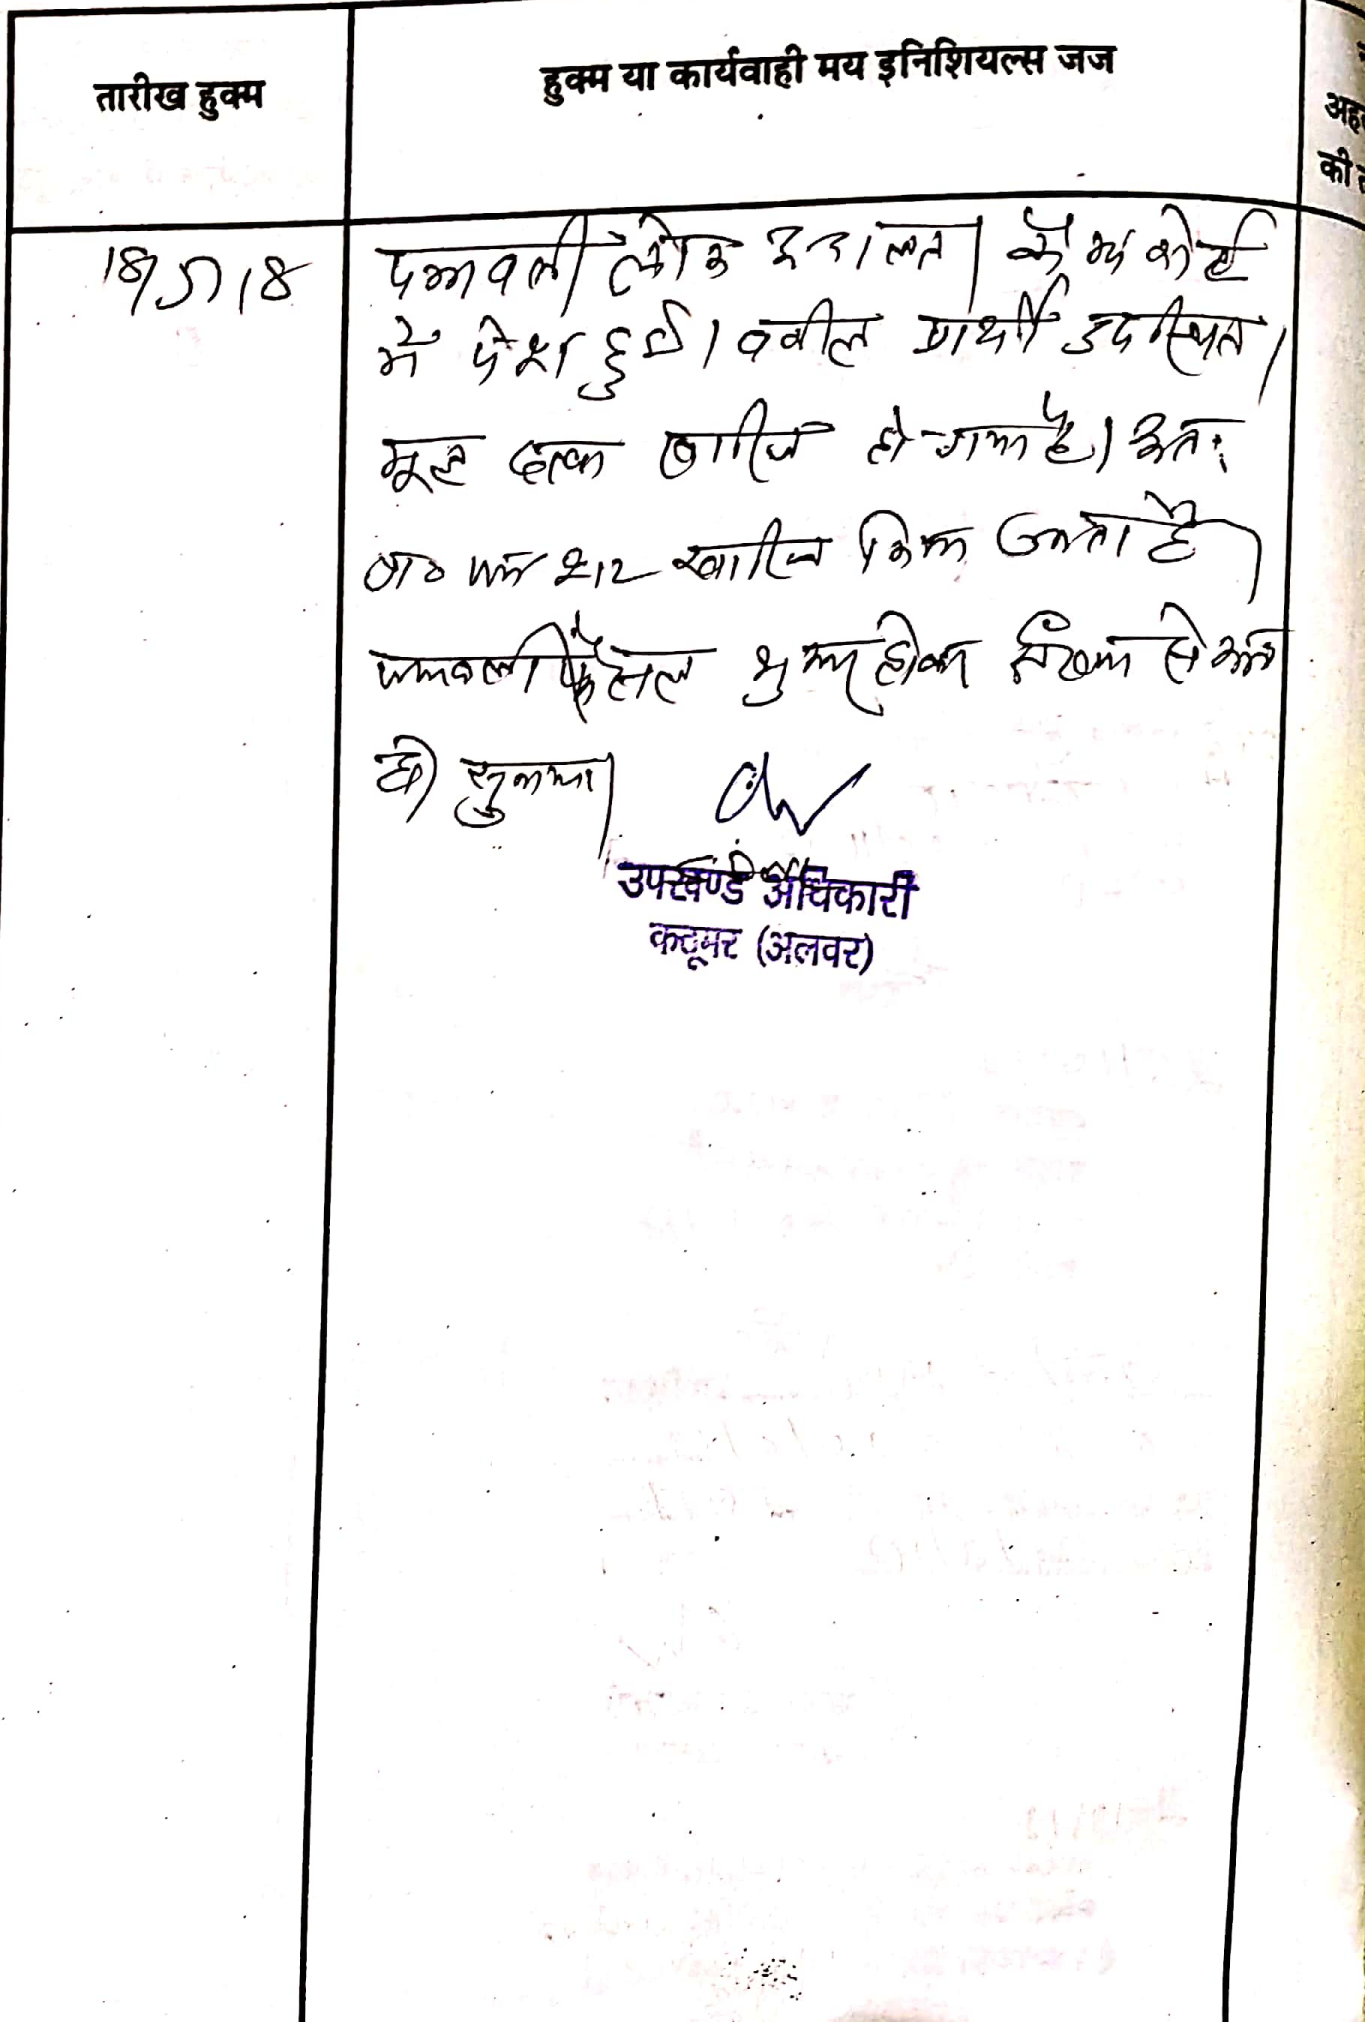 तारीख हुक्म
हुक्म या कार्यवाही मय इनिशियल्स जज
की
18/5/18
पत्रावली लोक अदालत कैम्प
में पेश हुई। वकील प्रार्थी उपस्थित।
मूल खारिज हो गया है। अतः
खारिज किया जाता है।
पत्रावली फैसल शुमार होकर से कम
हो। सुनाया।
उपखण्ड अधिकारी
कठूमर (अलवर)